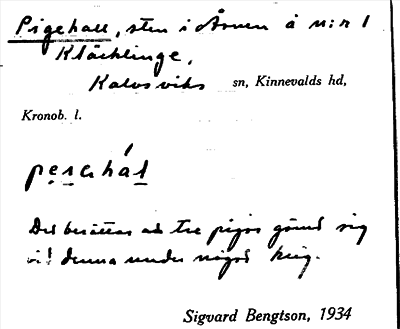 Pigehall, sten i Åsnen å n:r 1
Kläcklinge,
Kalvsviks sn, Kinnevalds hd,
Kronob. l.
Det berättas att tre pigor gömt sig
vid denna under något krig.
Sigvard Bengtson, 1934